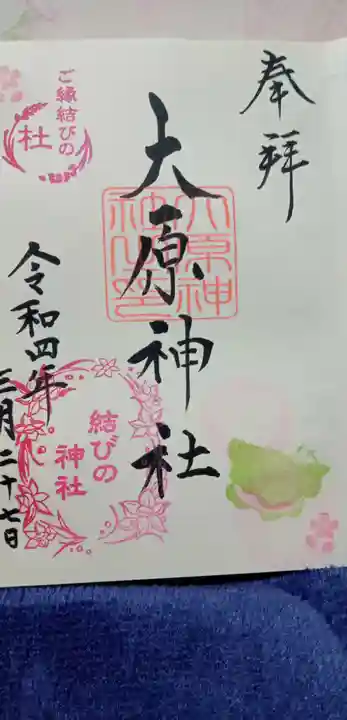 奉拝
大原神社
大原神
社之印
ご縁結びの
社
令和四年
三月二十七日
結びの
神社